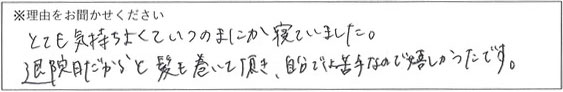 ※理由をお聞かせください
とても気持ちよくていつのまにか寝ていました。
退院日だからと髪も巻いて頂き、自分では苦手なので嬉しかったです。